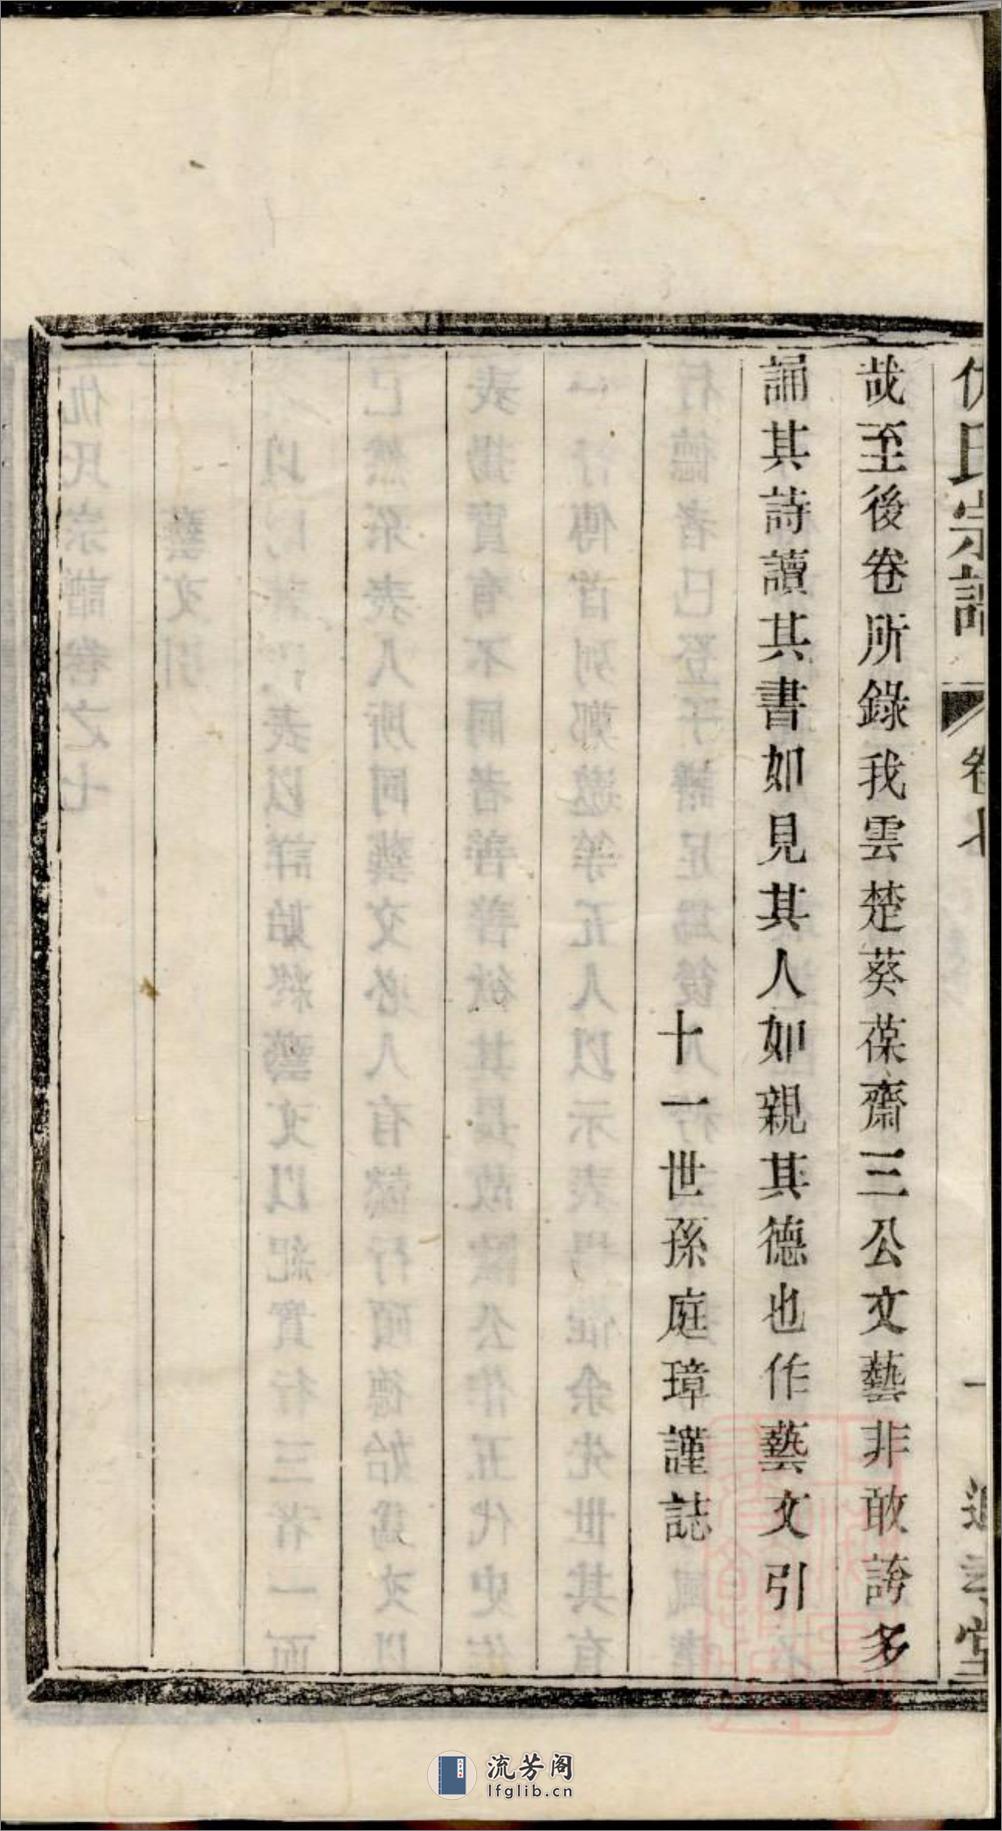 仇氏宗譜 卷七 一 追孝堂
哉至後卷所錄我雲楚葵葆齋三公文藝非敢誇多
誦其詩讀其書如見其人如親其德也作藝文引
十一世孫庭璋謹誌
流芳阁
lfglib.cn